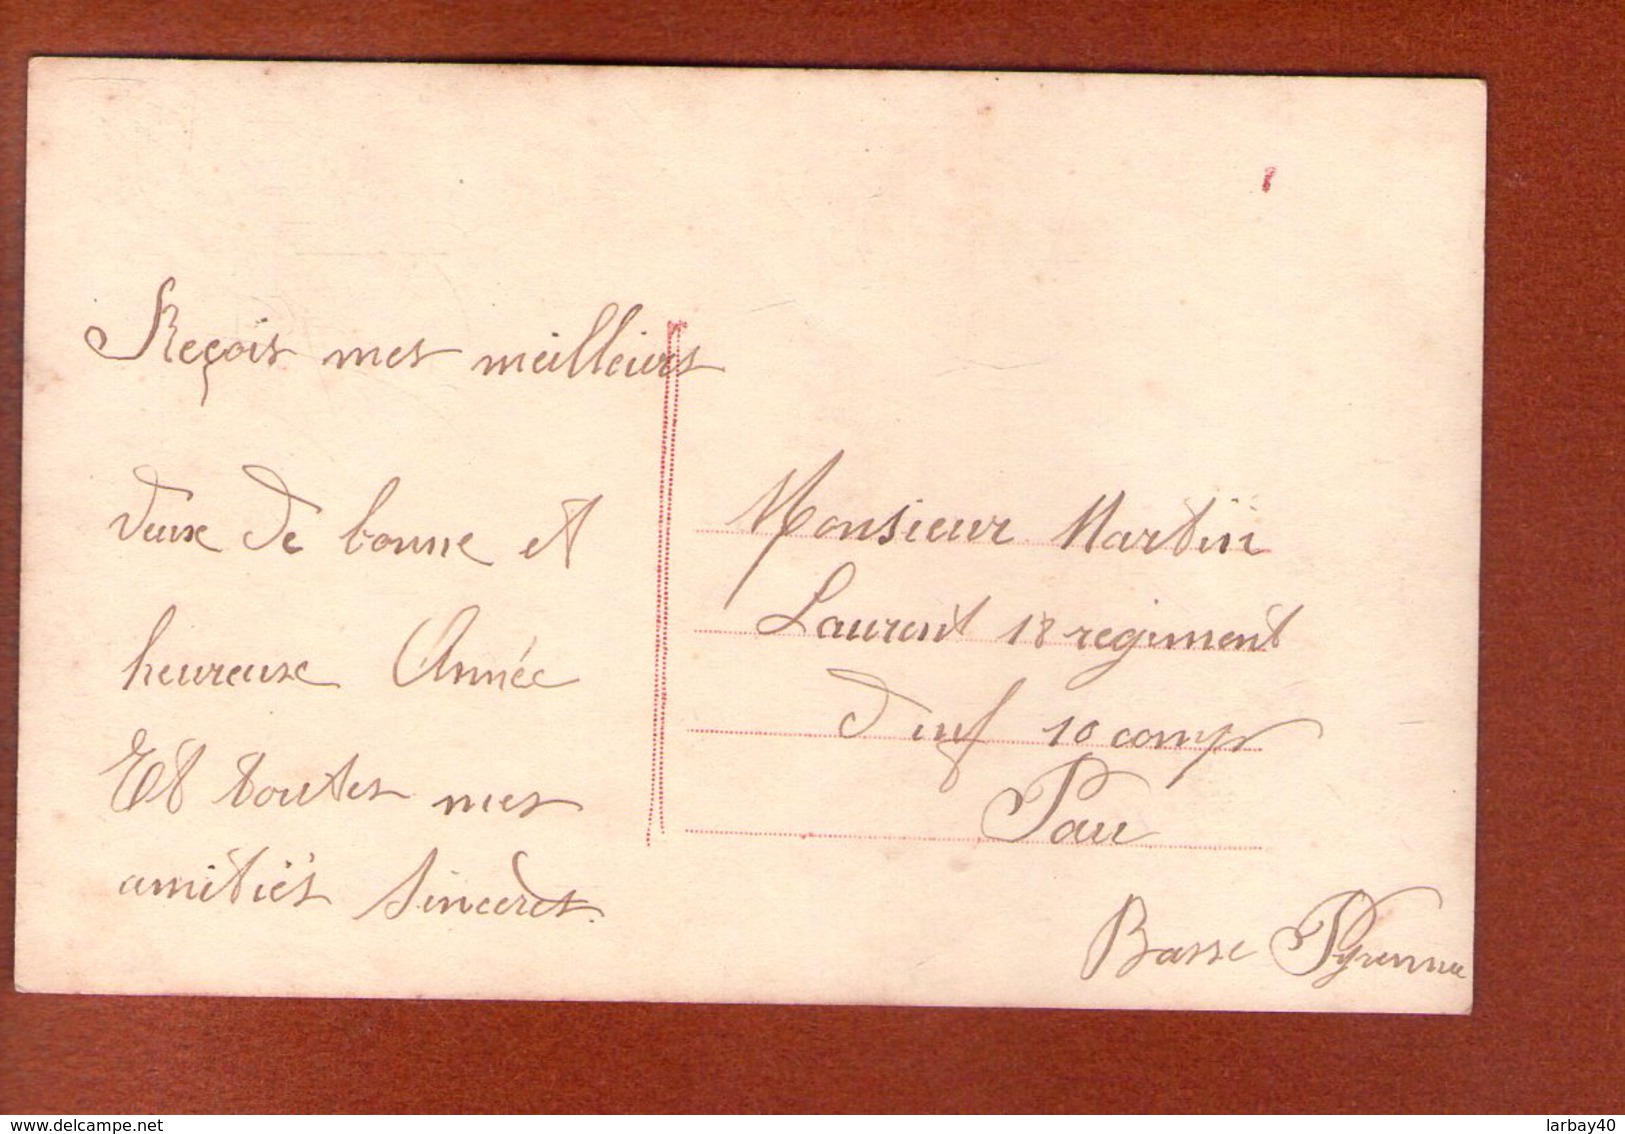 Reçois mes meilleurs
veux de bonne et
heureuse Année
Et toutes mes
amitiés sinceres.
Monsieur Martin
Laurent 18 regiment
d'inf 10 comp
Pau
Basse Pyrennee
delcampe.net
larbay40